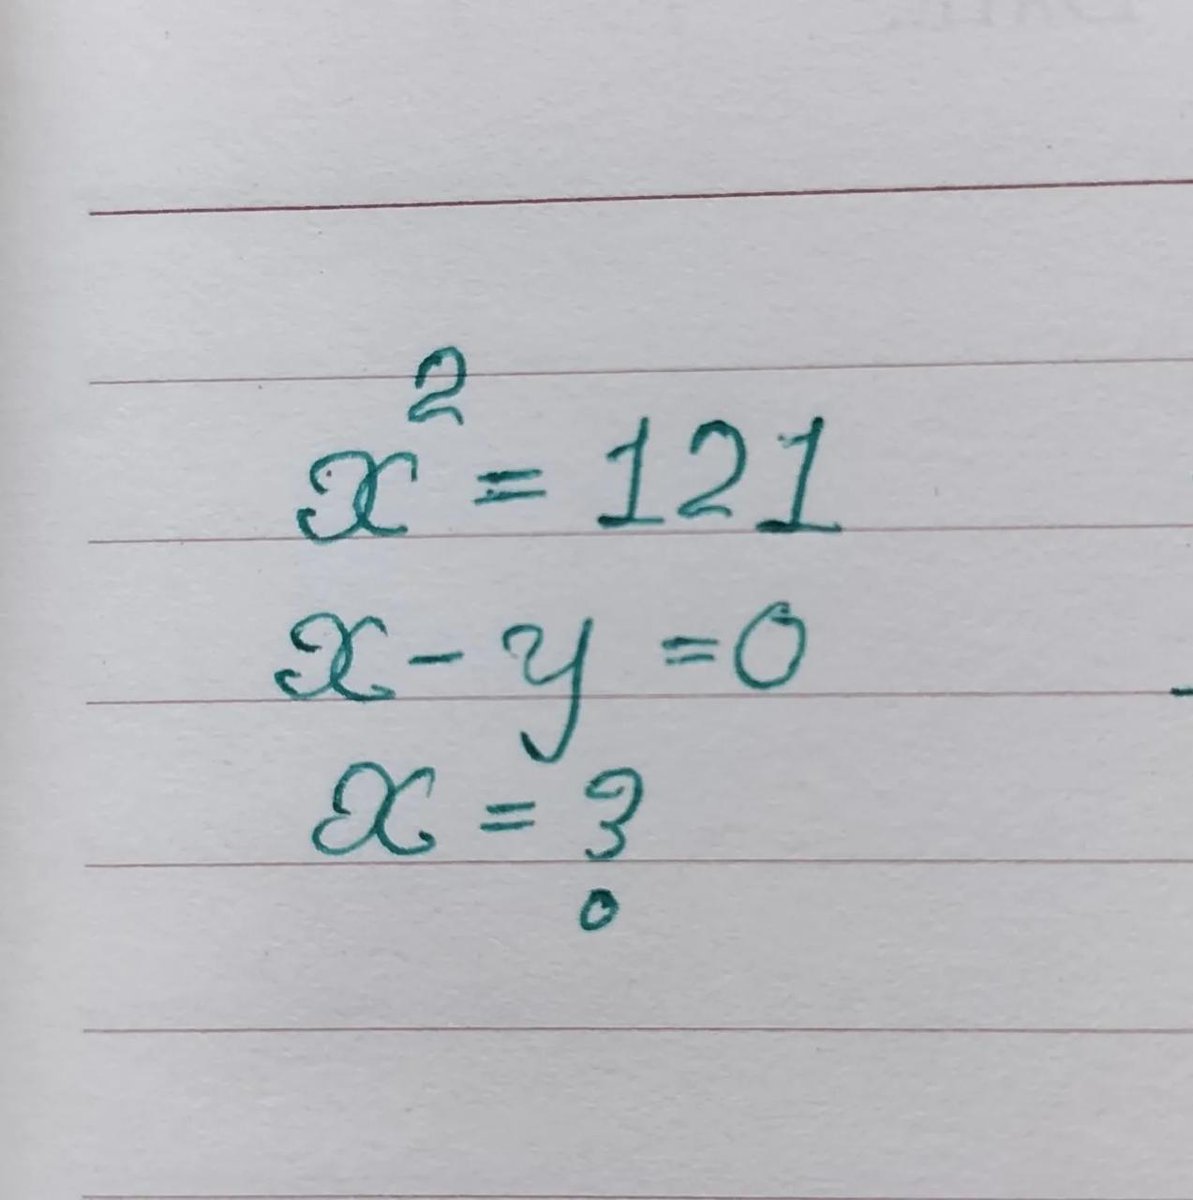 x² = 121
x - y = 0
x = ?